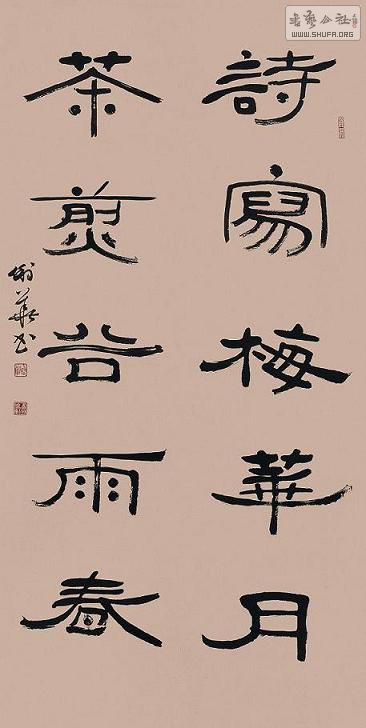 詩寫梅華月
茶煎谷雨春
書藝公社
WWW.SHUFA.ORG